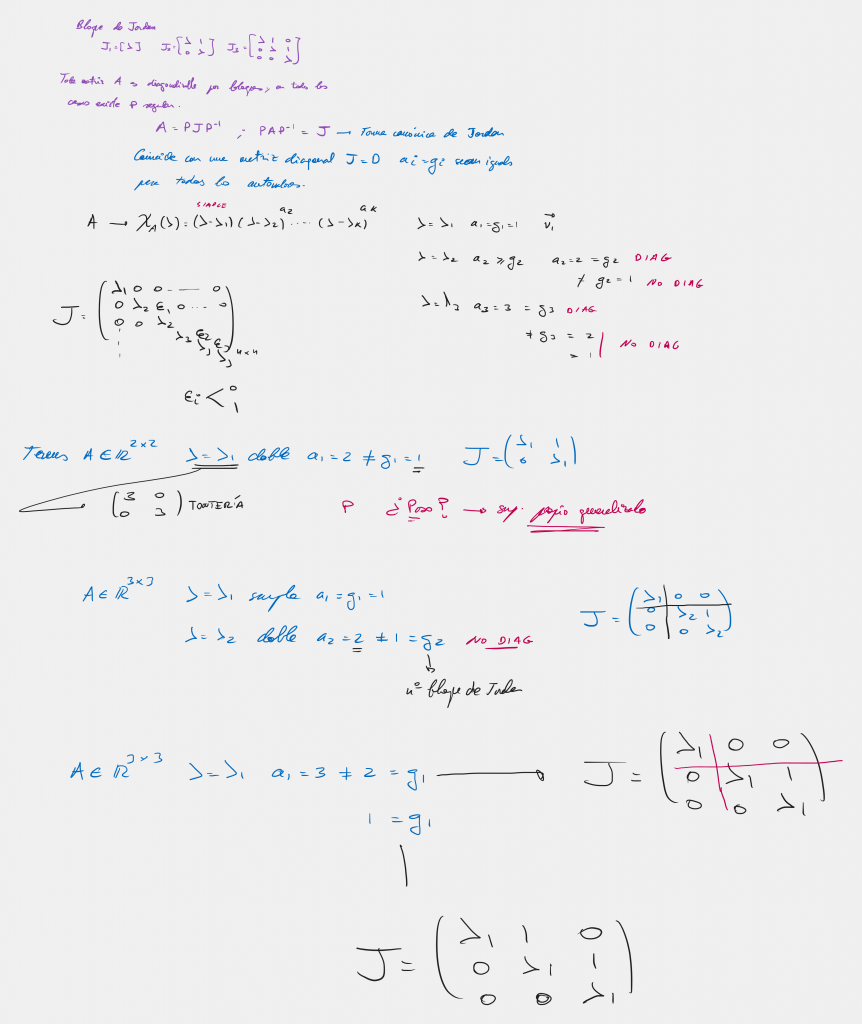 Bloque de Jordan
J₁=[λ] J₂=[λ 1; 0 λ] J₃=[λ 1 0; 0 λ 1; 0 0 λ]
Toda matriz A es diagonalizable por bloques, en todos los
casos existe P regular.
A = PJP⁻¹ ; PAP⁻¹ = J → Forma canónica de Jordan
Coincide con una matriz diagonal J=D aᵢ=gᵢ sean iguales
para todos los autovalores.
SIMPLE
A → χ_A(λ) = (λ-λ₁)(λ-λ₂)^a₂ .... (λ-λk)^ak
λ=λ₁ a₁=g₁=1 v₁
λ=λ₂ a₂ ≥ g₂ a₂=2 = g₂ DIAG
≠ g₂=1 NO DIAG
λ=λ₃ a₃=3 = g₃ DIAG
≠ g₃ = 2
= 1 NO DIAG
J = (λ₁ 0 0 ..... 0
0 λ₂ ε₁ 0 ... 0
0 0 λ₂
λ₃ ε₂
λ₃ ε₃
λ₃) n×n
εᵢ < 0
1
Tenemos A ∈ ℝ^2×2 λ=λ₁ doble a₁=2 ≠ g₁=1 J = (λ₁ 1; 0 λ₁)
(3 0; 0 3) TONTERÍA
P ¿Paso P? → sup. propio generalizado
A ∈ ℝ^3×3 λ=λ₁ simple a₁=g₁=1
λ=λ₂ doble a₂=2 ≠ 1 = g₂ NO DIAG
J = (λ₁ 0 0; 0 λ₂ 1; 0 0 λ₂)
nº bloque de Jordan
A ∈ ℝ^3×3 λ=λ₁ a₁ = 3 ≠ 2 = g₁ → J = (λ₁ 0 0; 0 λ₁ 1; 0 0 λ₁)
1 = g₁
J = (λ₁ 1 0; 0 λ₁ 1; 0 0 λ₁)